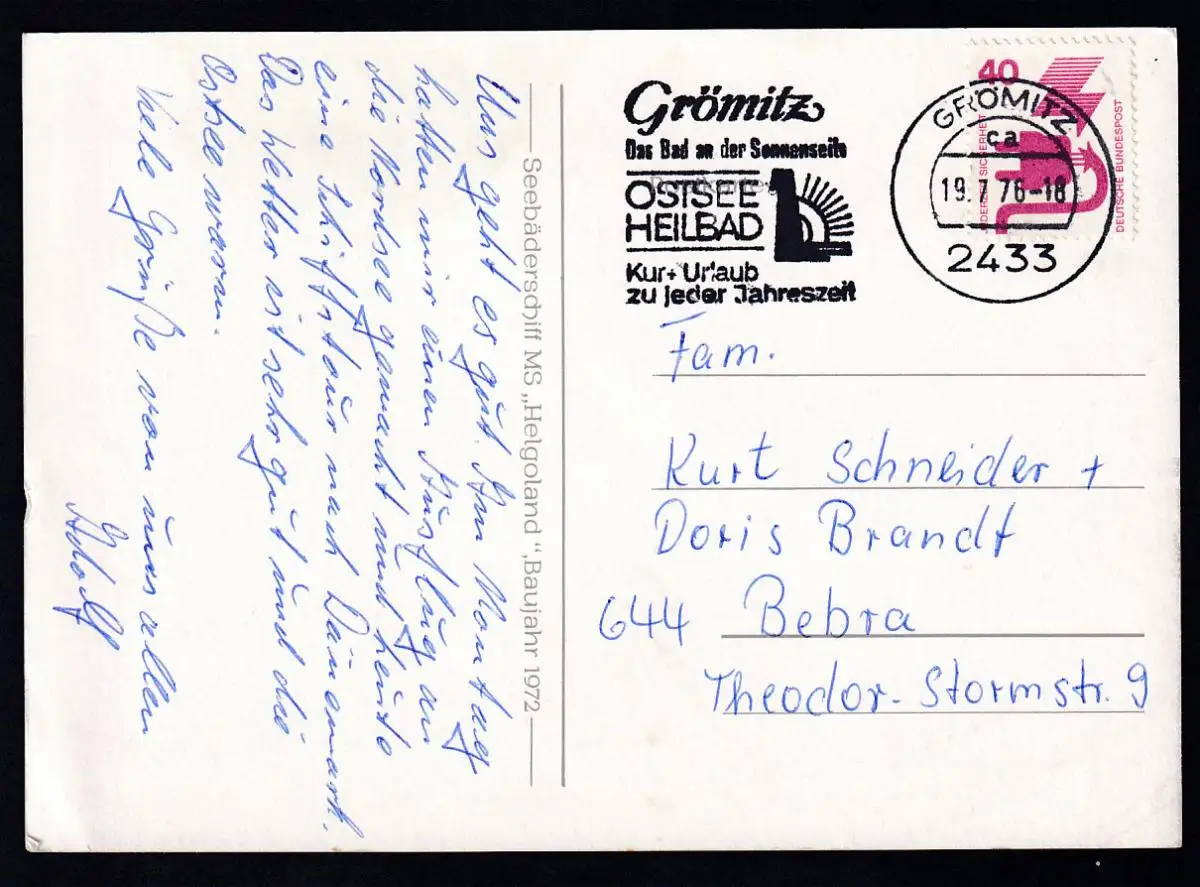 Uns geht es gut. Am Montag
hatten wir einen Ausflug an
die Nordsee gemacht und heute
eine Schiffstour nach Dänemark.
Das Wetter ist sehr gut und die
Ostsee warm.
Viele Grüße von uns allen
Adolf
Seebäderschiff MS „Helgoland“, Baujahr 1972
Grömitz
Das Bad an der Sonnenseite
OSTSEE
HEILBAD
Kur+Urlaub
zu jeder Jahreszeit
GRÖMITZ
ca
19.7.76-18
2433
40
JEDERZEIT SICHERHEIT
DEUTSCHE BUNDESPOST
Fam.
Kurt Schneider +
Doris Brandt
644 Bebra
Theodor-Stormstr. 9